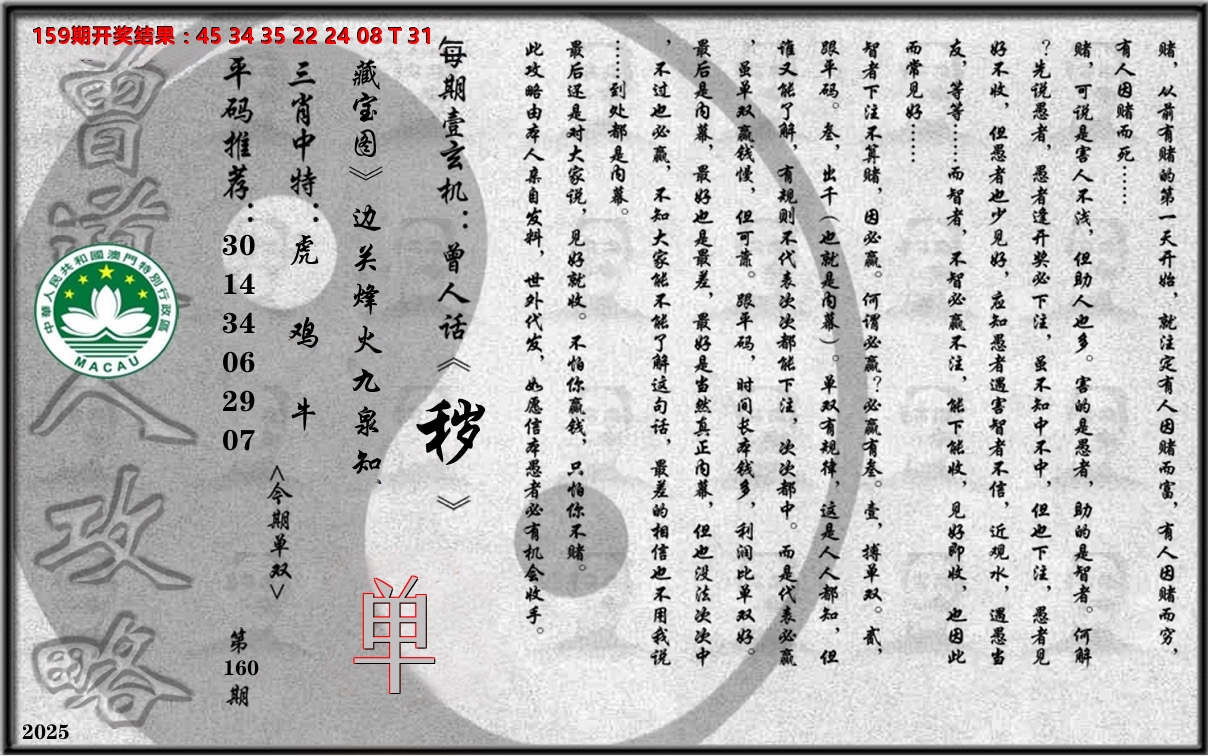 159期开奖结果：45 34 35 22 24 08 T 31
赌，从前有赌的第一天开始，就注定有人因赌而富，有人因赌而穷，
有人因赌而死……
赌，可说是害人不浅，但助人也多。害的是愚者，助的是智者。何解
？先说愚者，愚者逢开奖必下注，虽不知中不中，但也下注，愚者见
好不收，但愚者也少见好，应知愚者遇害智者不信，近观水，遇愚当
友，等等……而智者，不智必赢不注，能下能收，见好即收，也因此
而常见好……
智者下注不算赌，因必赢。何谓必赢？必赢有叁。壹，搏单双。贰，
跟平码。叁，出千（也就是内幕）。单双有规律，这是人人都知，但
谁又能了解，有规则不代表次次都能下注，次次都中。而是代表必赢
，虽单双赢钱慢，但可靠。跟平码，时间长本钱多，利润比单双好。
最后是内幕，最好也是最差，最好是当然真正内幕，但也没法次次中
，不过也必赢，不知大家能不能了解这句话，最差的相信也不用我说
……到处都是内幕。
最后还是对大家说，见好就收。不怕你赢钱，只怕你不赌。
此攻略由本人亲自发料，世外代发，如愿信本愚者必有机会收手。
每期壹玄机：曾人话《秽》
藏宝图》边关烽火九泉知、
单
三肖中特：虎 鸡 牛
<今期单双>
平码推荐：30 14 34 06 29 07
第160期
曾道人攻略
中華人民共和國澳門特別行政區
MACAU
2025